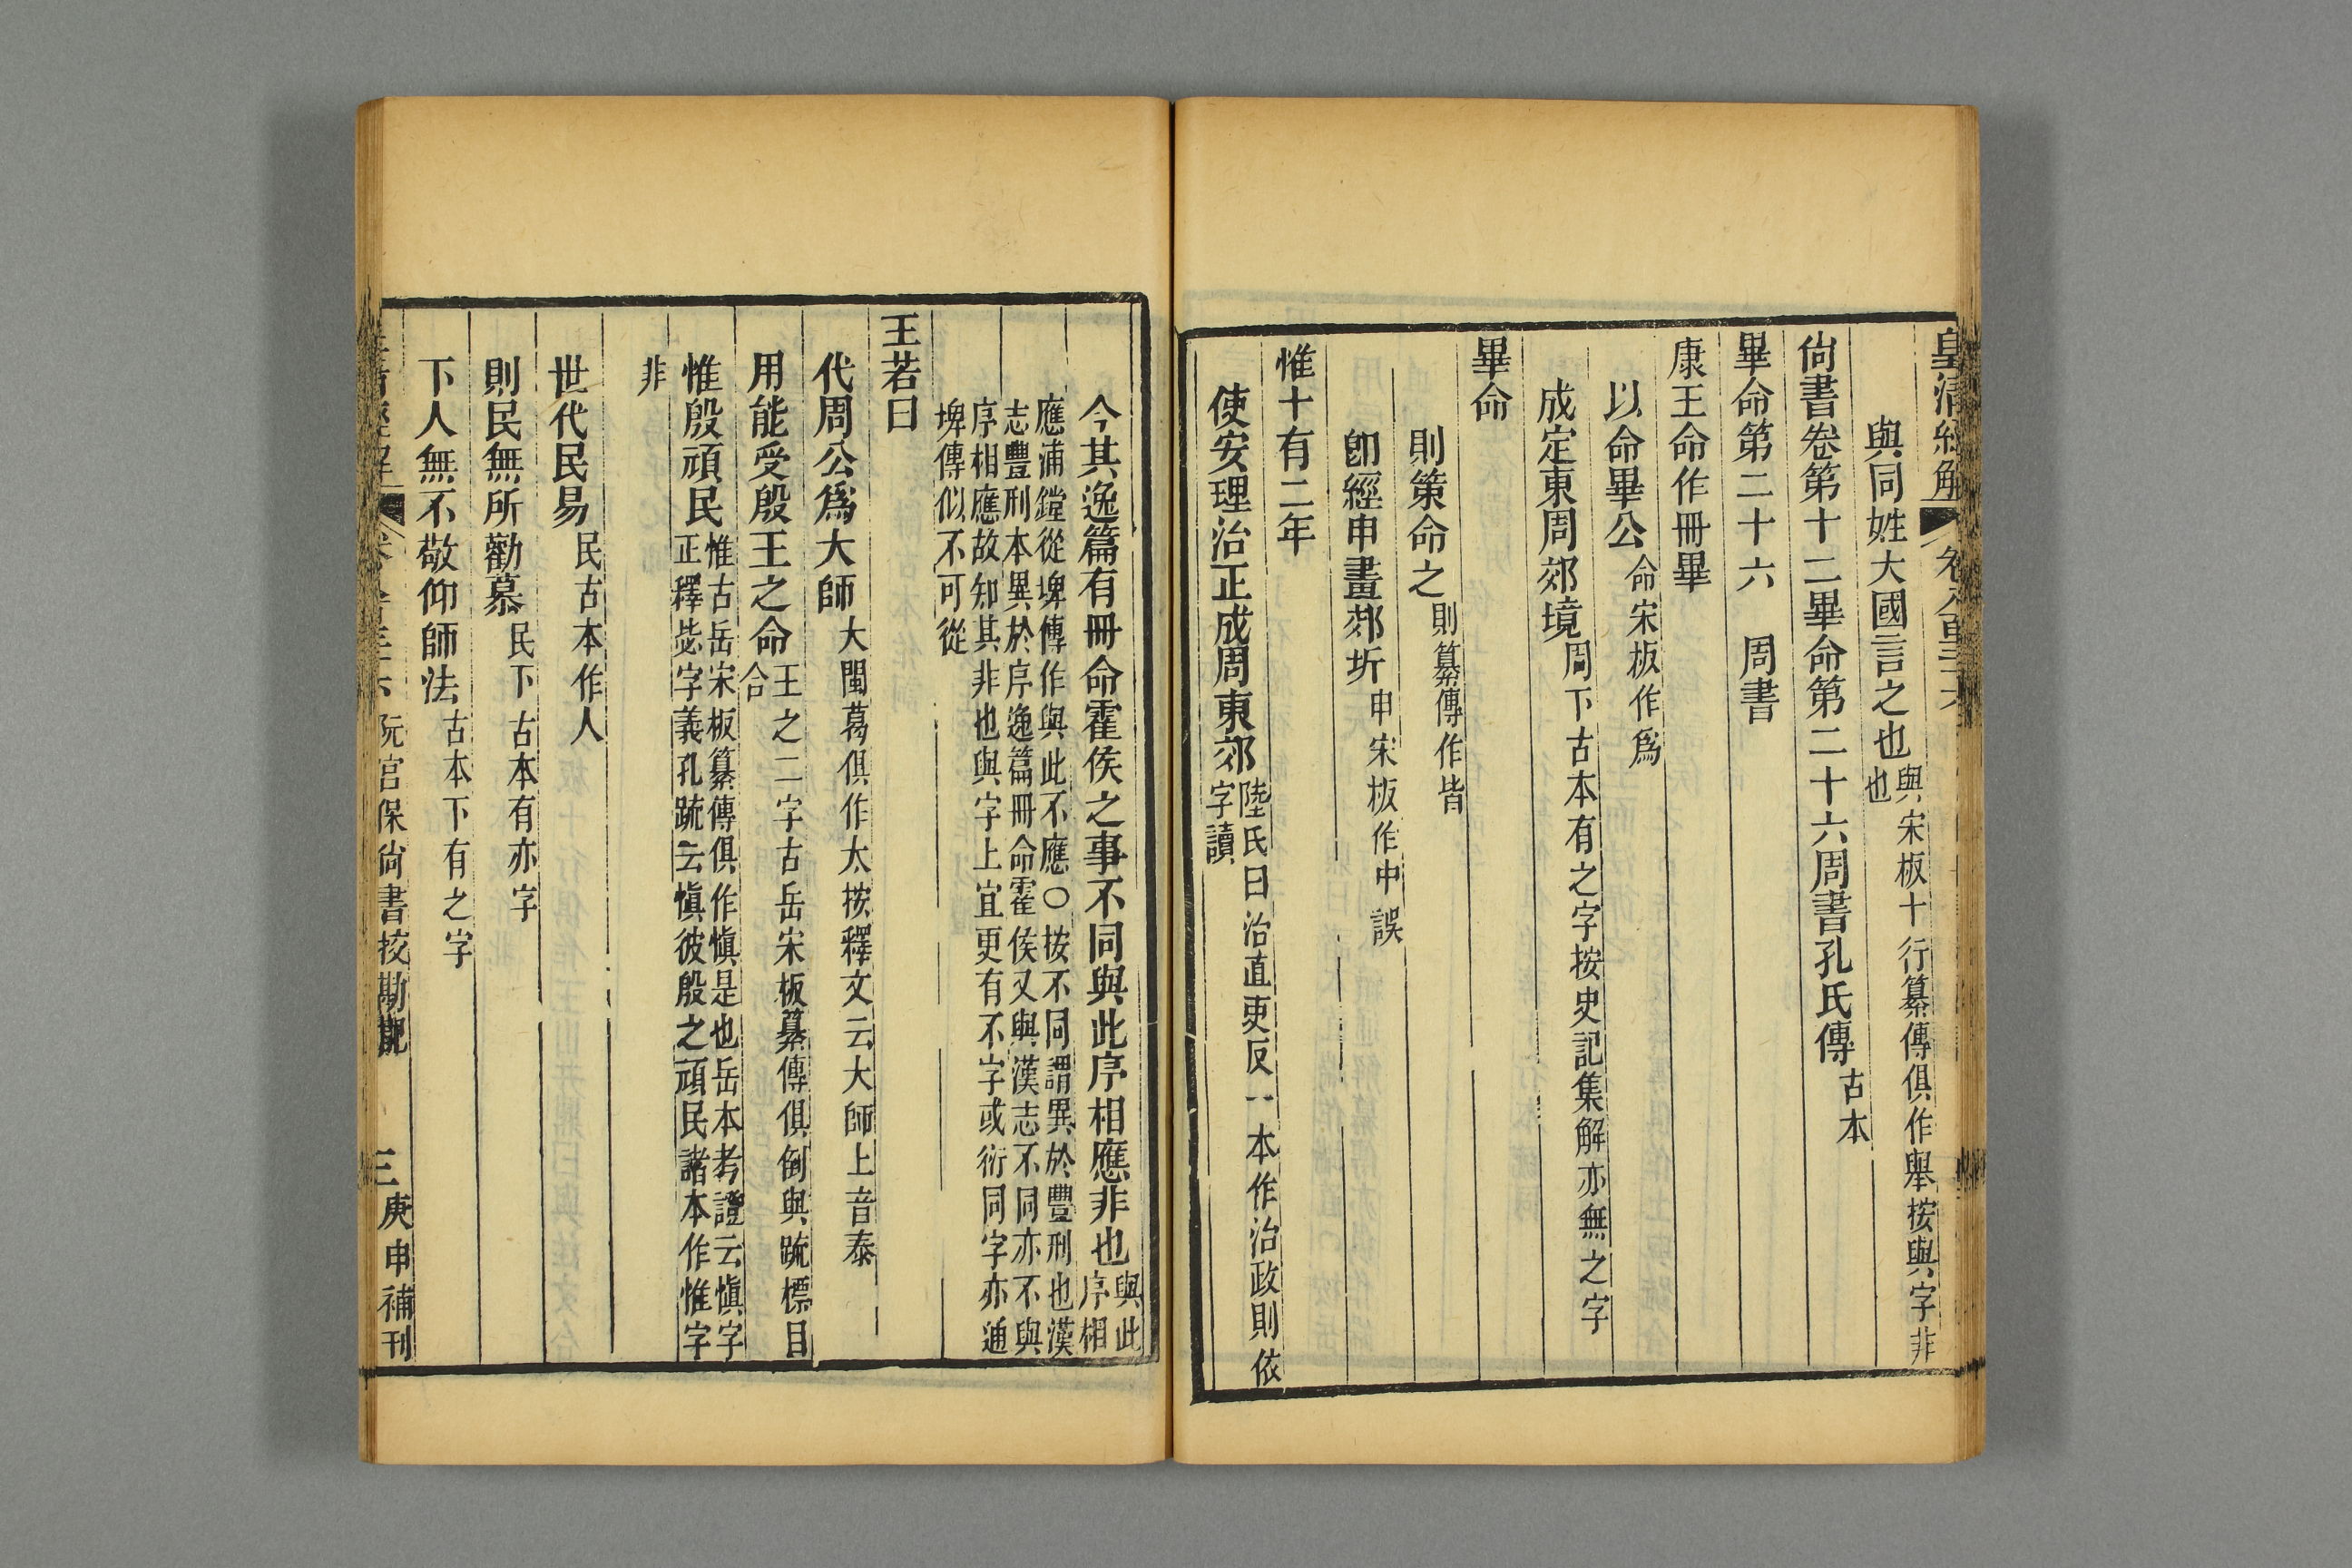 皇清經解 卷八百三十六
與同姓大國言之也 與宋板十行纂傳俱作舉按與字非也
尙書卷第十二畢命第二十六周書孔氏傳 古本
畢命第二十六 周書
康王命作冊畢
以命畢公 命宋板作爲
成定東周郊境 周下古本有之字按史記集解亦無之字
畢命
則策命之 則纂傳作皆
卽經申畫郊圻 申宋板作中誤
惟十有二年
使安理治正成周東郊 陸氏曰治直吏反一本作治政則依字讀
今其逸篇有冊命霍侯之事不同與此序相應非也 與此序相
應浦鏜從埤傳作與此不應○按不同謂異於豐刑也漢
志豐刑本異於序逸篇冊命霍侯又與漢志不同亦不與
序相應故知其非也與字上宜更有不字或衍同字亦通
埤傳似不可從
王若曰
代周公爲大師 大閩葛俱作太按釋文云大師上音泰
用能受殷王之命 王之二字古岳宋板纂傳俱倒與疏標目合
惟殷頑民 惟古岳宋板纂傳俱作愼是也岳本考證云愼字
正釋毖字義孔疏云愼彼殷之頑民諸本作惟字
非
世代民易 民古本作人
則民無所勸慕 民下古本有亦字
下人無不敬仰師法 古本下有之字
皇清經解 阮宮保尙書挍勘記 三 庚申補刊